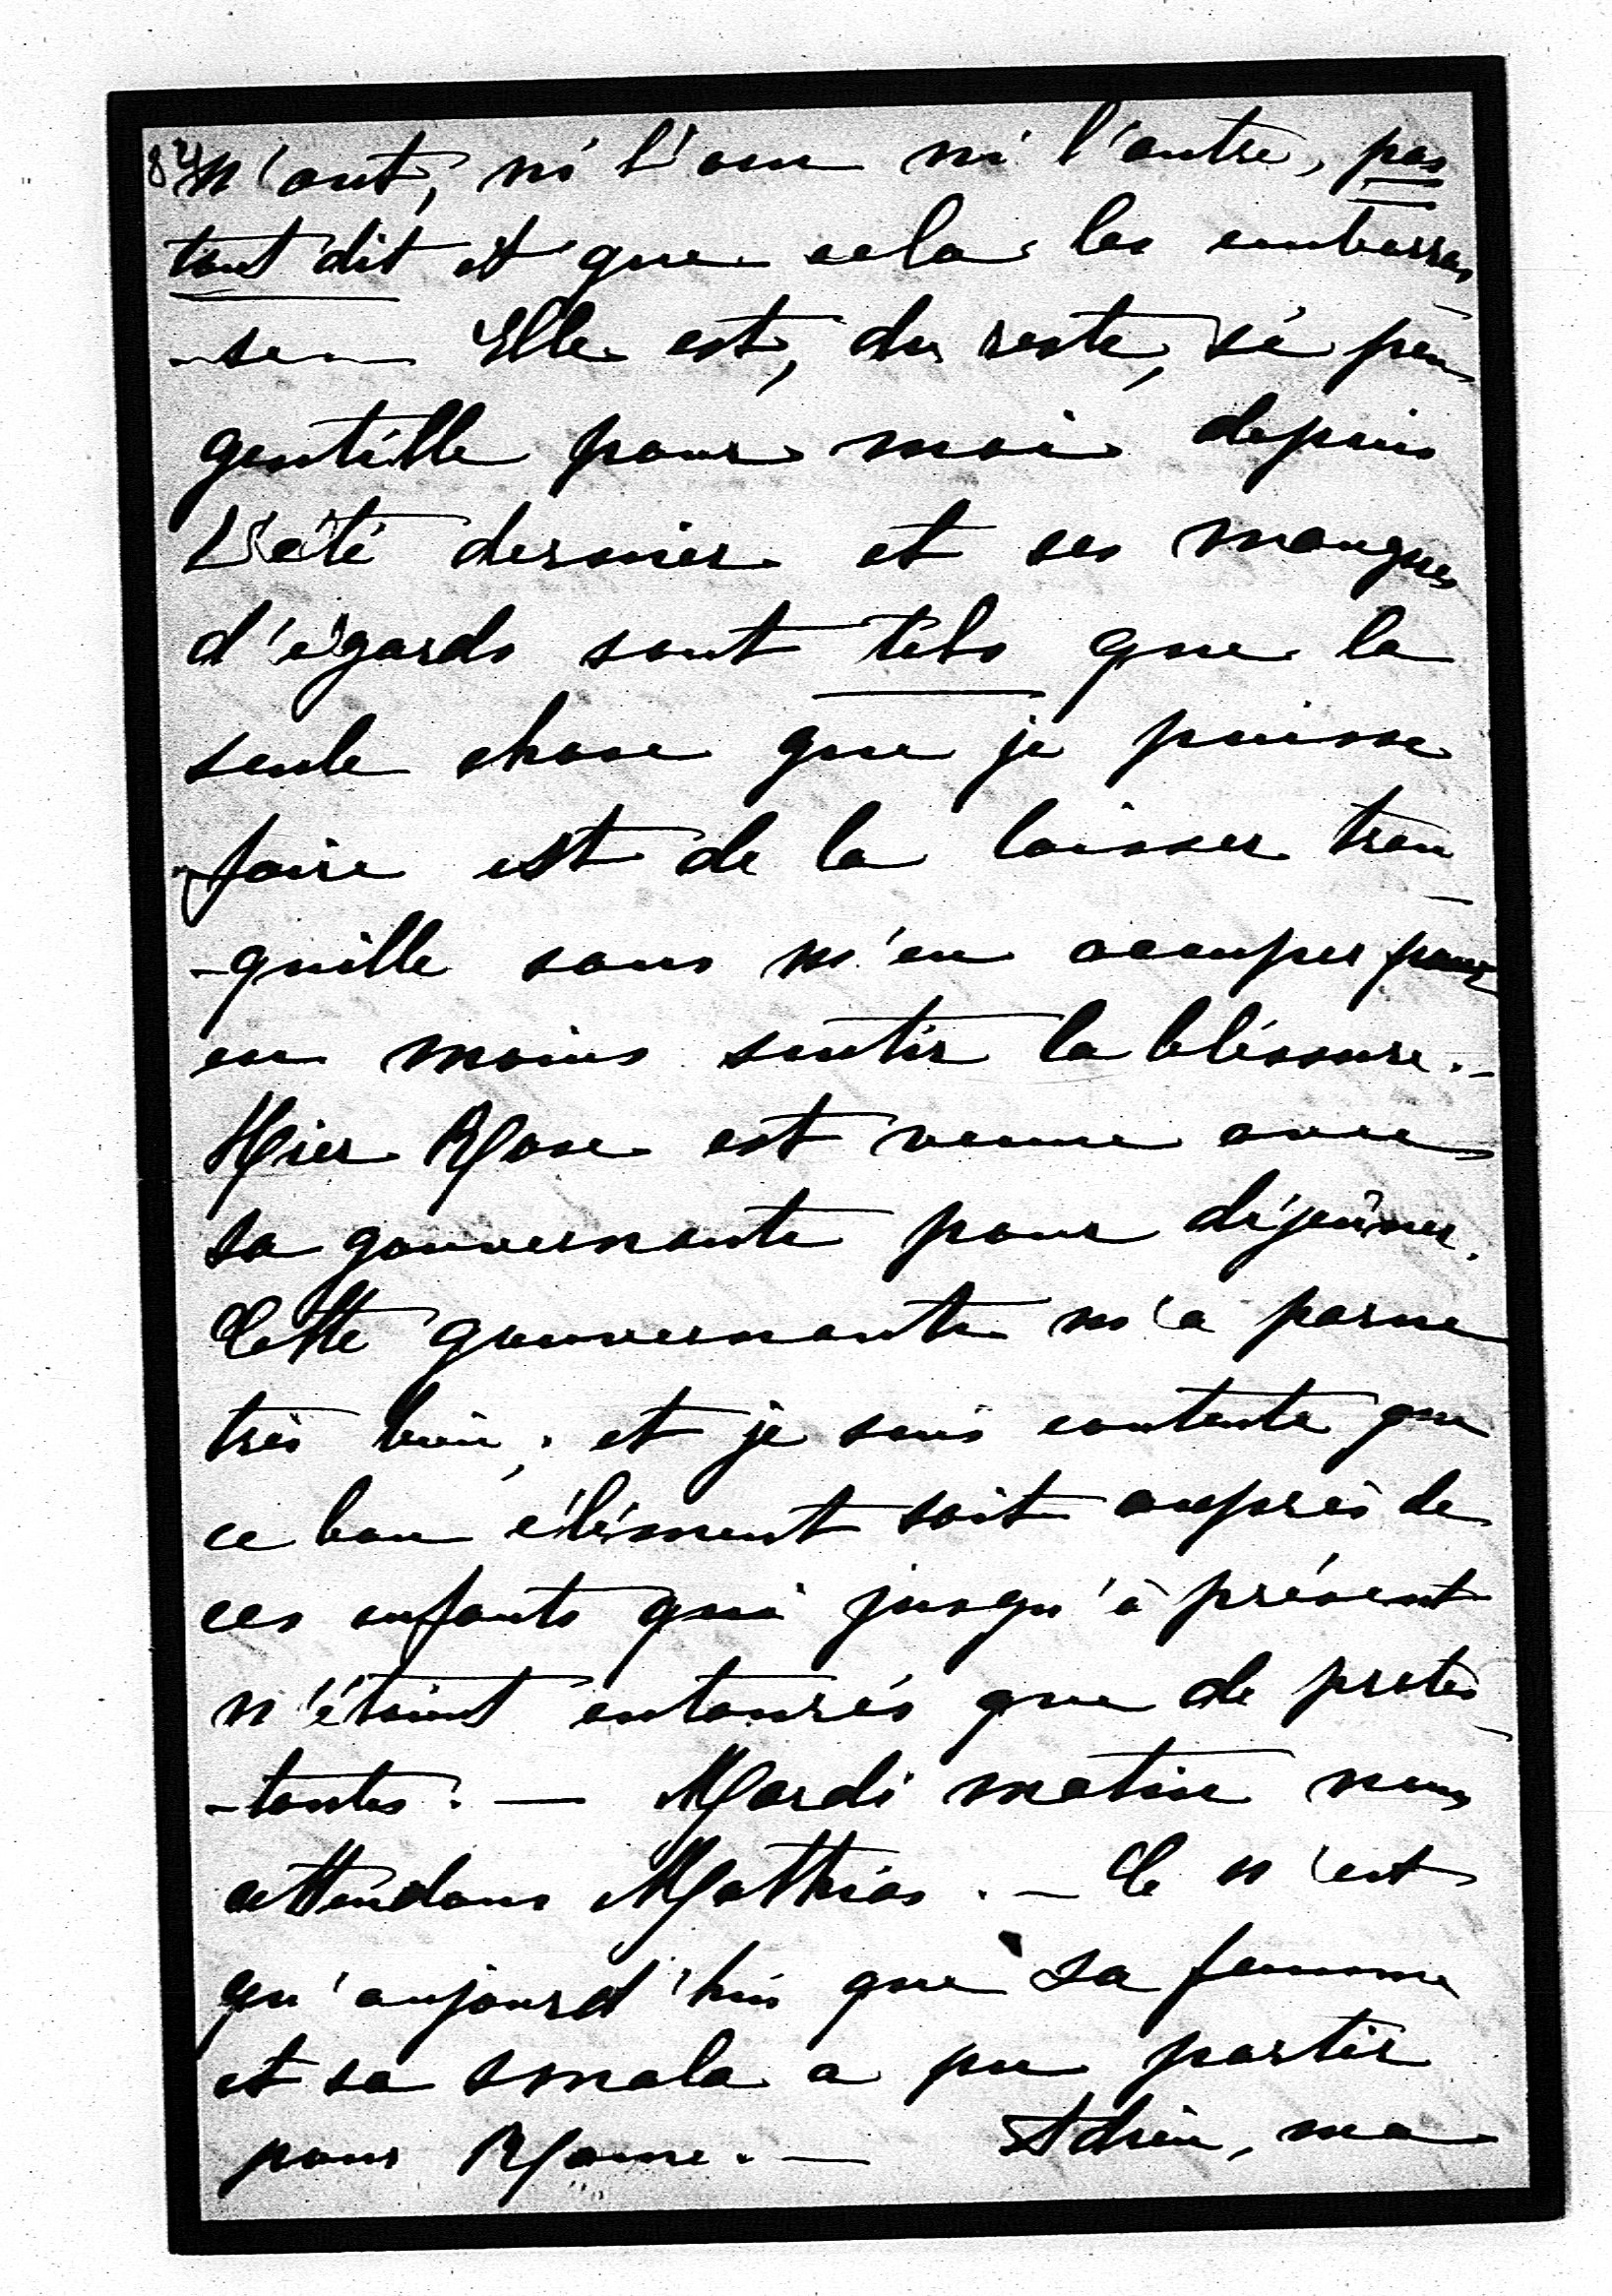 84
n'ont, ni l'un ni l'autre, pas
tout dit et que cela les embarras
-se. — Elle est, du reste, si peu
gentille pour moi depuis
l'été dernier et ses manques
d'égards sont tels que la
seule chose que je puisse
faire est de la laisser tran-
-quille sans m'en occuper pour
en moins sentir la bléssure. _
Hier Rose est venue avec
sa gouvernante pour déjeûner.
Cette gouvernante m'a parue
très bien, et je suis contente que
ce bon élément soit auprès de
ces enfants qui jusqu'à présent
n'étaient entourés que de protes-
-tantes. — Mardi matin nous
attendons Mathias. — Ce n'est
qu'aujourd'hui que sa femme
et sa smala a pu partir
pour Rome. — Adieu, ma